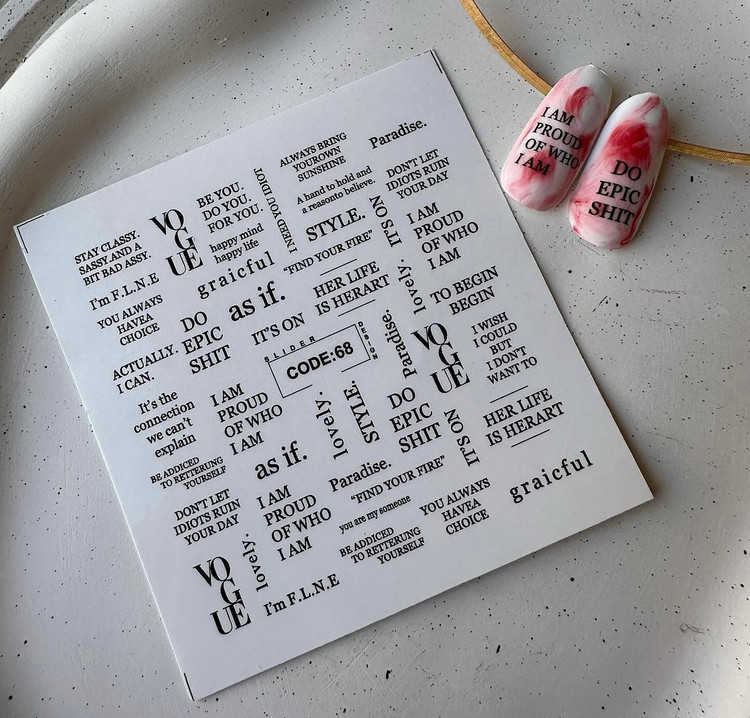 STAY CLASSY.
SASSY AND A
BIT BAD ASSY.
VO
G
UE
BE YOU.
DO YOU.
FOR YOU.
happy mind
happy life
I NEED YOU IDIOT
ALWAYS BRING
YOUROWN
SUNSHINE
Paradise.
A hand to hold and
a reasonto believe.
STYLE.
"FIND YOUR FIRE"
IT'S ON
DON'T LET
IDIOTS RUIN
YOUR DAY
I'm F.L.N.E
graicful
YOU ALWAYS
HAVEA
CHOICE
DO
EPIC
SHIT
as if.
IT'S ON
HER LIFE
IS HERART
lovely.
I AM
PROUD
OF WHO
I AM
TO BEGIN
BEGIN
ACTUALLY.
I CAN.
SLIDER
DESIGN
CODE:68
Paradise.
VO
G
UE
I WISH
I COULD
BUT
I DON'T
WANT TO
It's the
connection
we can't
explain
I AM
PROUD
OF WHO
I AM
as if.
lovely.
STYLE.
DO
EPIC
SHIT
IT'S ON
HER LIFE
IS HERART
BE ADDICED
TO RETTERUNG
YOURSELF
DON'T LET
IDIOTS RUIN
YOUR DAY
I AM
PROUD
OF WHO
I AM
Paradise.
"FIND YOUR FIRE"
you are my someone
YOU ALWAYS
HAVEA
CHOICE
graicful
VO
G
UE
lovely.
I'm F.L.N.E
BE ADDICED
TO RETTERUNG
YOURSELF
I AM
PROUD
OF WHO
I AM
DO
EPIC
SHIT